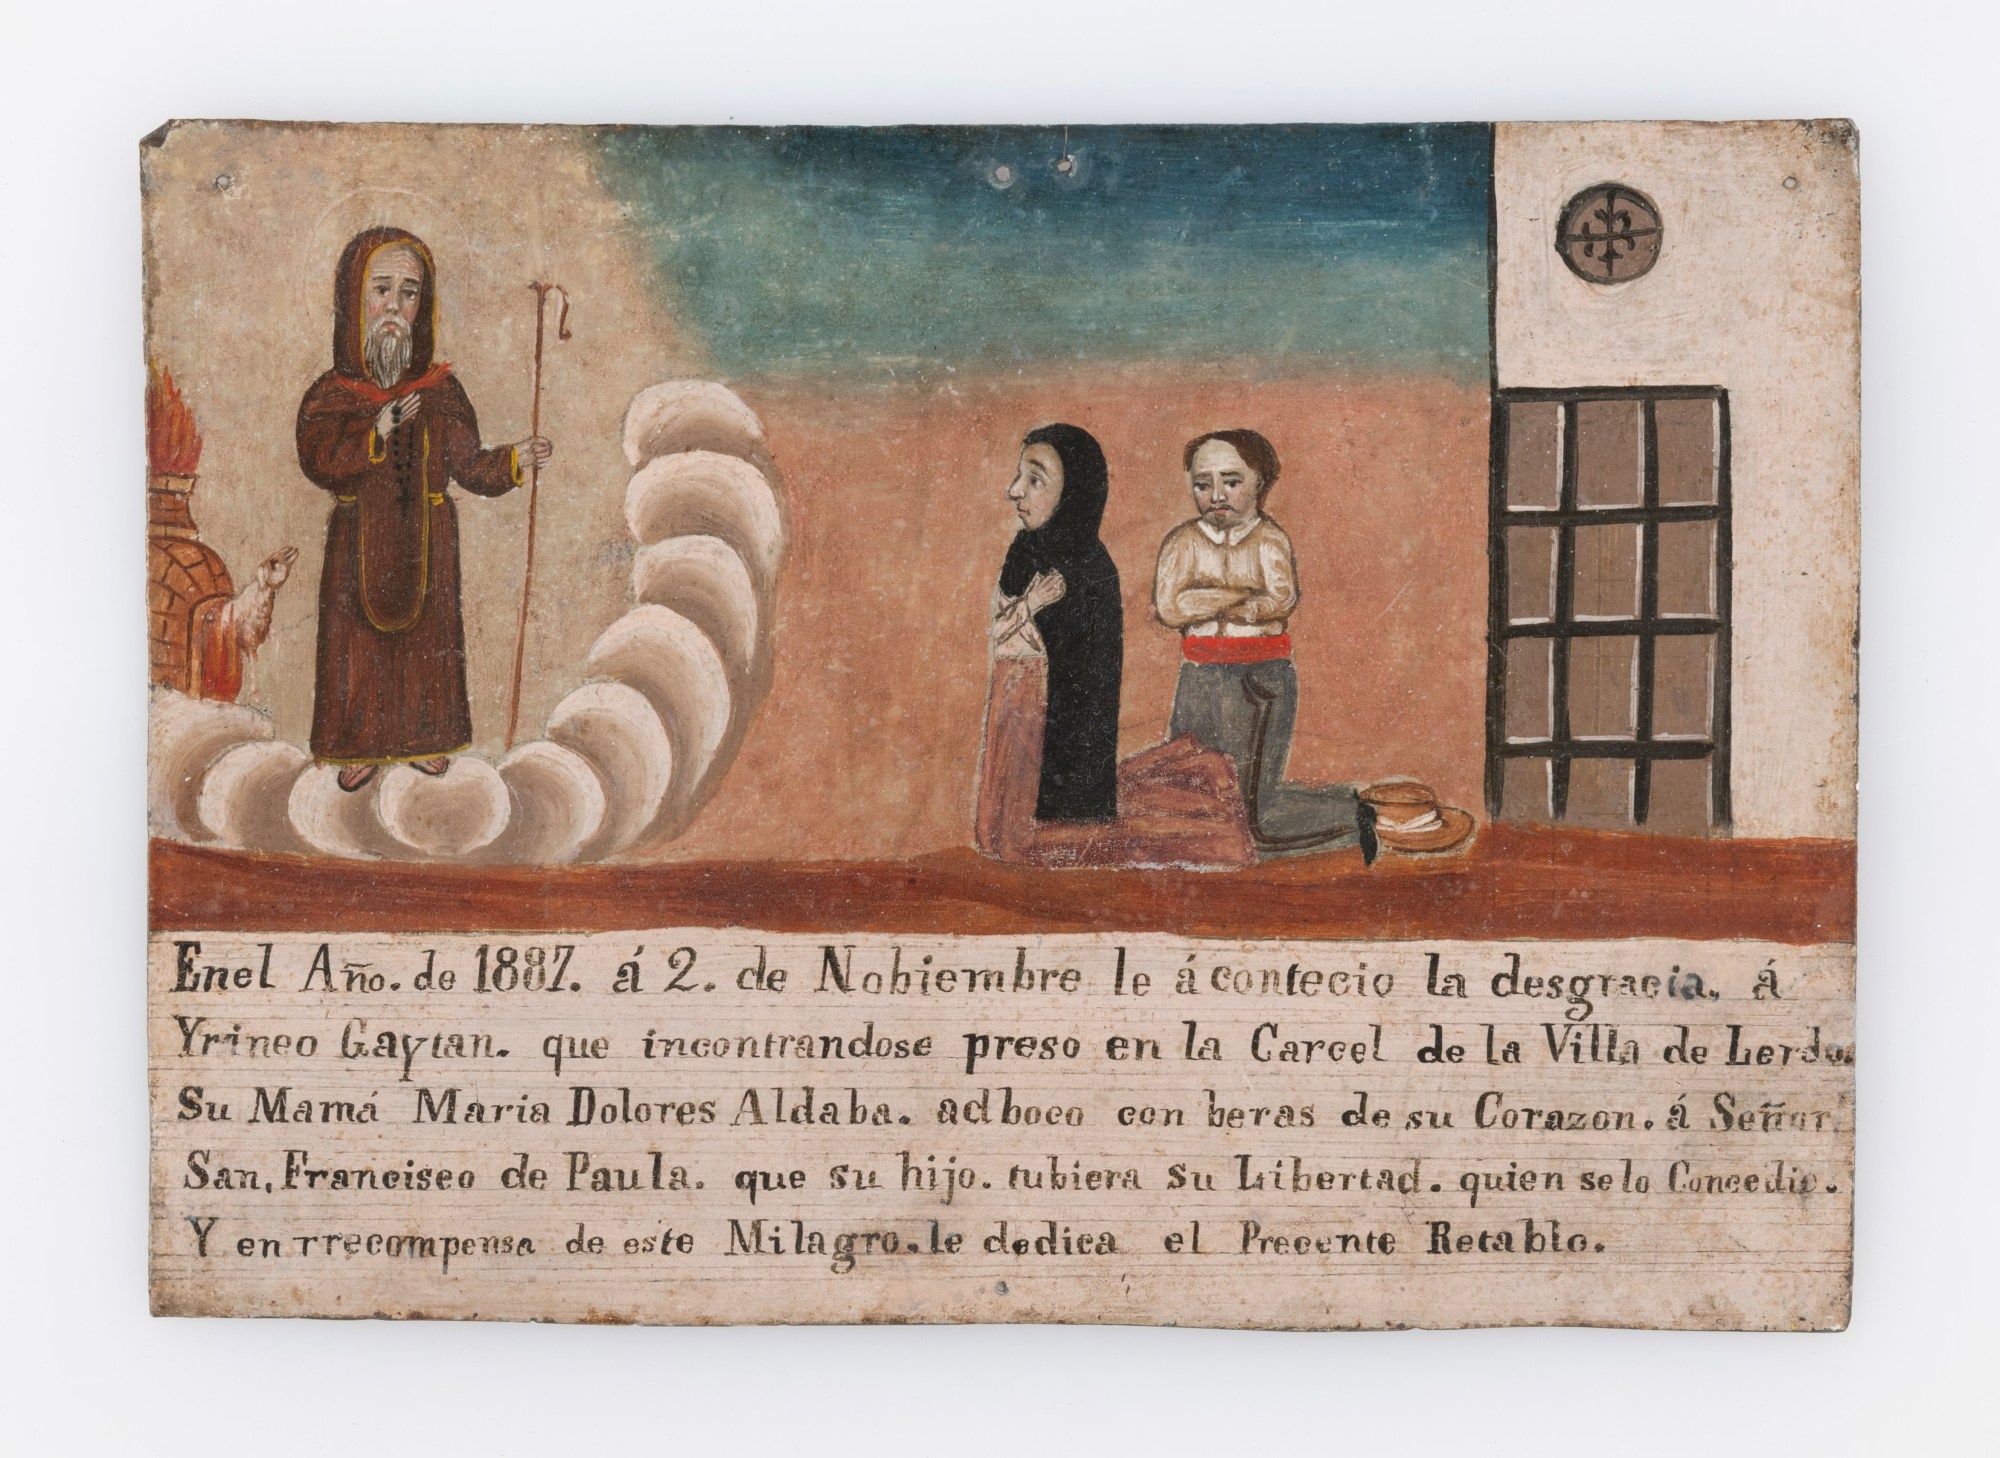 Enel Año. de 1887. á 2. de Nobiembre le á contecio la desgracia. á
Yrineo Gaytan. que incontrandose preso en la Carcel de la Villa de Lerdo.
Su Mamá Maria Dolores Aldaba. adboco con beras de su Corazon. á Señor.
San, Francisco de Paula. que su hijo. tubiera su Libertad. quien se lo Concedio.
Y en rrecompensa de este Milagro. le dedica el Precente Retablo.